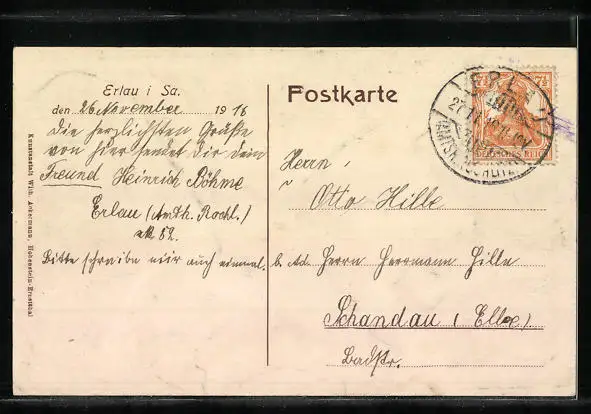 Erlau i Sa.
den 26 November 1916
Die herzlichsten Grüße
von hier sendet Dir dein
Freund Heinrich Böhme
Erlau (Amth. Rochl.)
52.
Bitte schreibe mir auch einmal.
Kunstanstalt Wilh. Ackermann, Hohenstein-Ernstthal
Postkarte
DEUTSCHES REICH
Herrn
Otto Hille
b. Ad. Herrn Herrmann Hille
Schandau (Elbe)
Badstr.